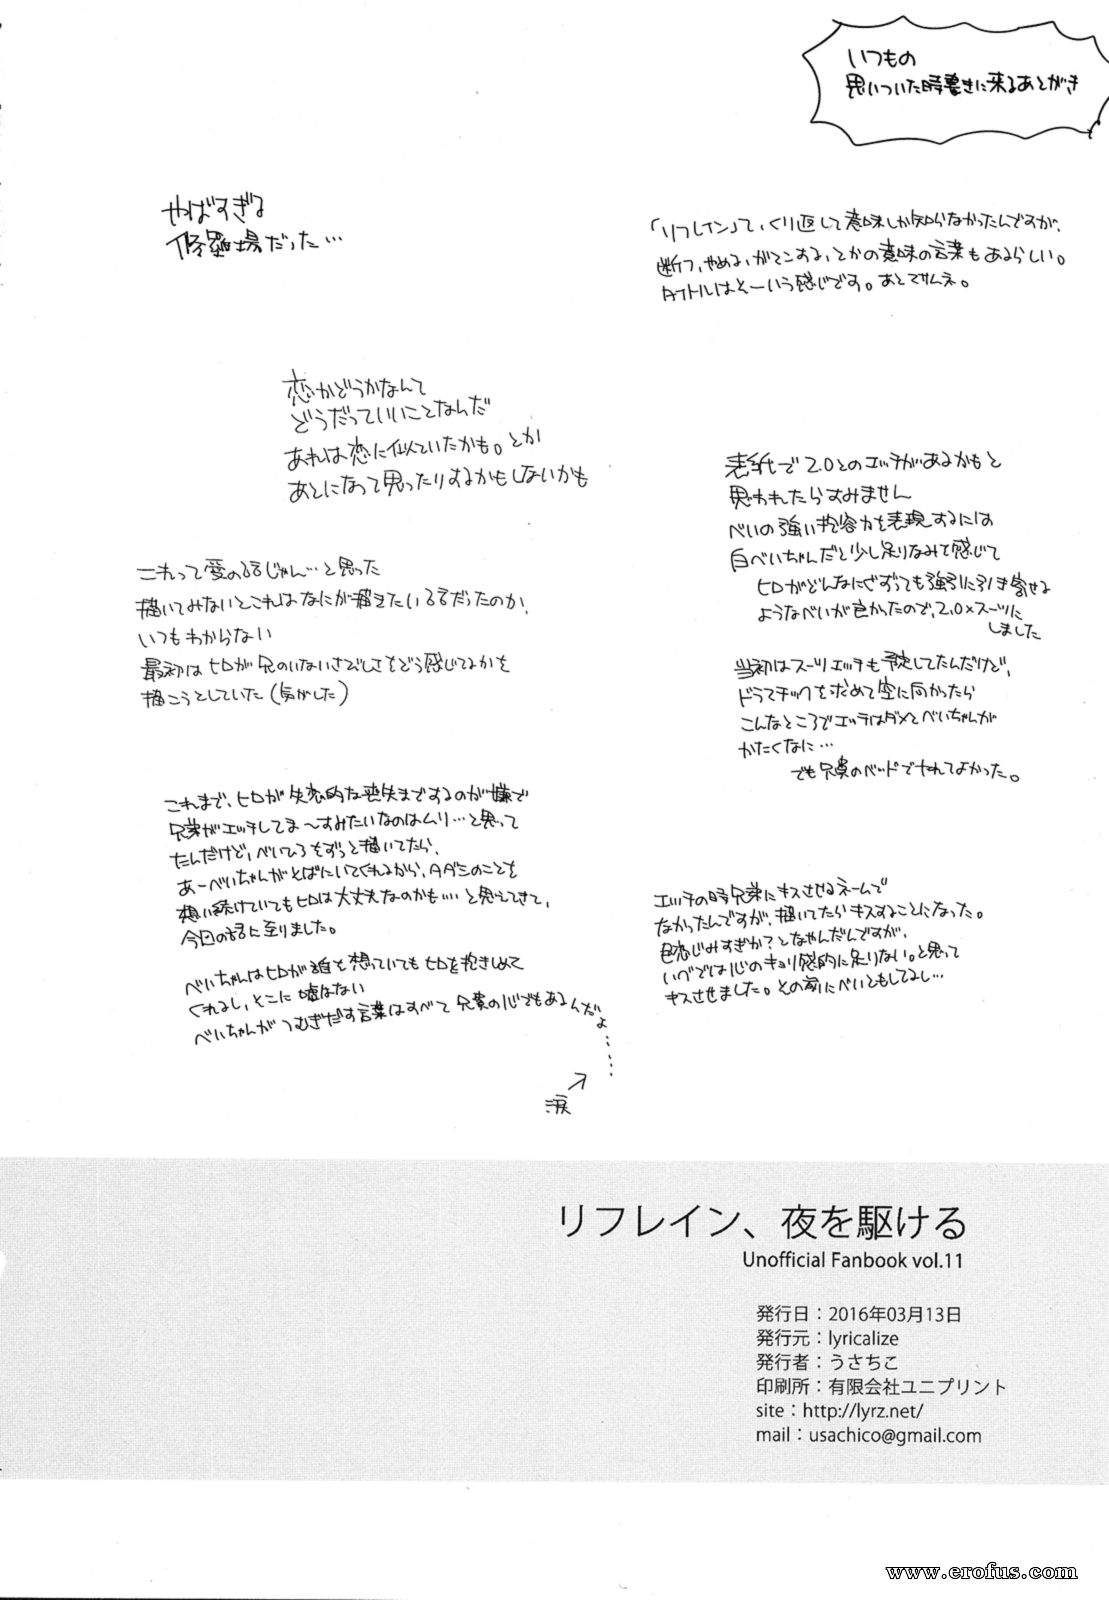 いつもの
思いついた時書きに来るあとがき
「リフレイン」て、くり返して意味しか知らなかったんですが、
断つ、やめる、がマンする、とかの意味の言葉もあるらしい。
タイトルはそーいう感じです。あとマサムネ。
やばすぎる
修羅場だった…
恋かどうかなんて
どうだっていいことなんだ
あれは恋に似ていたかも。とか
あとになって思ったりするかもしないかも
表紙で2.0とのエッチがあるかもと
思われたらすみません
べいの強い包容力を表現するには
白べいちゃんだと少し足りなみて感じて
ヒロがどんなにぐずっても強引に引き寄せる
ようなべいが良かったので、2.0×スーツに
しました
当初はスーツエッチも予定してたんだけど、
ドラマチックを求めて空に向かったら
こんなところでエッチはダメとべいちゃんが
かたくなに…
でも兄貴のベッドでヤれてよかった。
これって愛の話じゃん…と思った
描いてみないとこれはなにが描きたい話だったのか、
いつもわからない
最初はヒロが兄のいないさびしさをどう感じてるかを
描こうとしていた(気がした)
これまで、ヒロが失恋的な喪失までするのが嫌で
兄弟がエッチしてま〜すみたいなのはムリ…と思って
たんだけど、べいひろをずっと描いてたら、
あーべいちゃんがそばにいてくれるから、タダシのことを
想い続けていてもヒロは大丈夫なのかも…と思えてきて、
今回の話に至りました。
べいちゃんはヒロが誰を想っていてもヒロを抱きしめて
くれるし、そこに嘘はない
べいちゃんがつむぎだす言葉はすべて兄貴の心でもあるんだよ……
涙
エッチの時兄弟にキスさせるネームで
なかったんですが、描いてたらキスすることになった。
色恋じみすぎか?となやんだんですが、
いべでは心のキョリ感的に足りない。と思って
キスさせました。その前にべいともしてるし…
リフレイン、夜を駆ける
Unofficial Fanbook vol.11
発行日:2016年03月13日
発行元:lyricalize
発行者:うさちこ
印刷所:有限会社ユニプリント
site:http://lyrz.net/
mail:usachico@gmail.com
www.erofus.com